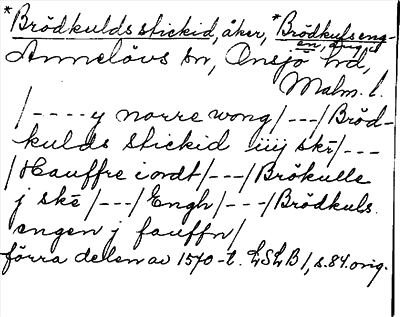 *Brödkulds stickid, åker, *Brödkulseng-
en, äng i
Annelövs sn, Onsjö hd,
Malm. l.
/----y norre wong/---/Bröd-
kulds stickid iiij skē/---
/Hauffre iordt/---/Brökulle
j skē/---/Engh/---/Brödkuls.
engen j fauffn/
förra delen av 1570-t. LSLB 1, s. 84. orig.